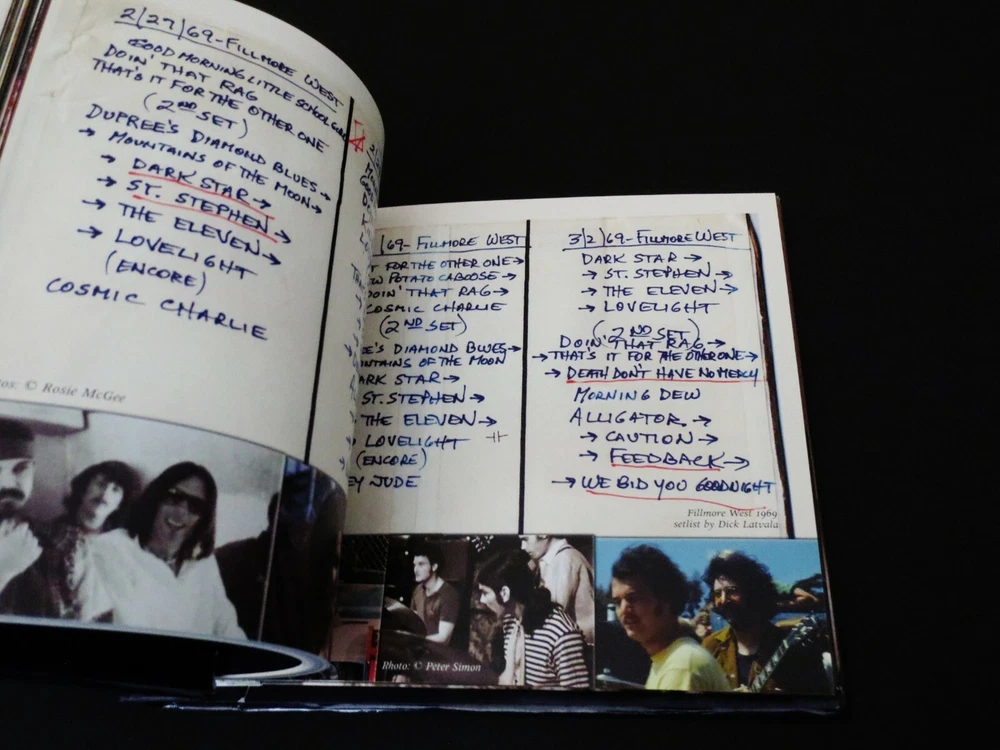 2/27/69-FILLMORE WEST
GOOD MORNING LITTLE SCHOOL GIRL
DOIN' THAT RAG
THAT'S IT FOR THE OTHER ONE
(2ND SET)
DUPREE'S DIAMOND BLUES→
→ MOUNTAINS OF THE MOON→
→ DARK STAR→
→ ST. STEPHEN→
→ THE ELEVEN→
→ LOVELIGHT
(ENCORE)
COSMIC CHARLIE
© Rosie McGee
/69- FILLMORE WEST
FOR THE OTHER ONE→
POTATO CABOOSE→
DOIN' THAT RAG→
COSMIC CHARLIE
(2ND SET)
EE'S DIAMOND BLUES→
NTAINS OF THE MOON
ARK STAR→
ST. STEPHEN→
THE ELEVEN→
LOVELIGHT
(ENCORE)
EY JUDE
3/2/69-FILLMORE WEST
DARK STAR→
→ ST. STEPHEN→
→ THE ELEVEN→
→ LOVELIGHT
(2ND SET)
DOIN' THAT RAG→
→THAT'S IT FOR THE OTHER ONE→
→ DEATH DON'T HAVE NO MERCY
MORNING DEW
ALLIGATOR→
→ CAUTION→
→ FEEDBACK→
→ WE BID YOU GOODNIGHT
Fillmore West 1969
setlist by Dick Latvala
Photo: © Peter Simon